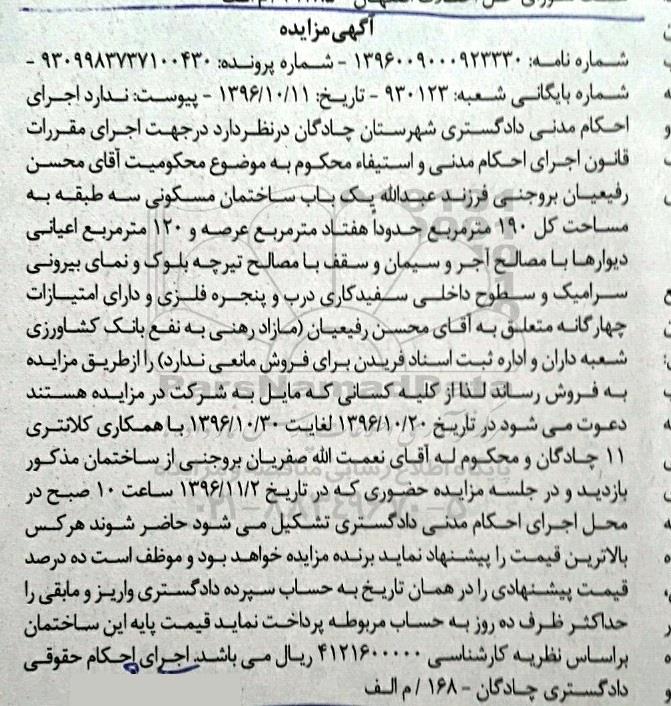 آگهی مزایده
شماره نامه: ۱۳۹۶۰۰۹۰۰۰۹۲۳۳۳۰ - شماره پرونده: ۹۳۰۹۹۸۳۷۳۷۱۰۰۴۳۰ -
شماره بایگانی شعبه: ۹۳۰۱۲۳ - تاریخ: ۱۳۹۶/۱۰/۱۱ - پیوست: ندارد اجرای
احکام مدنی دادگستری شهرستان چادگان درنظردارد درجهت اجرای مقررات
قانون اجرای احکام مدنی و استیفاء محکوم به موضوع محکومیت آقای محسن
رفیعیان بروجنی فرزند عبدالله یک باب ساختمان مسکونی سه طبقه به
مساحت کل ۱۹۰ مترمربع حدوداً هفتاد مترمربع عرصه و ۱۲۰ مترمربع اعیانی
دیوارها با مصالح آجر و سیمان و سقف با مصالح تیرچه بلوک و نمای بیرونی
سرامیک و سطوح داخلی سفیدکاری درب و پنجره فلزی و دارای امتیازات
چهارگانه متعلق به آقای محسن رفیعیان (مازاد رهنی به نفع بانک کشاورزی
شعبه داران و اداره ثبت اسناد فریدن برای فروش مانعی ندارد) را ازطریق مزایده
به فروش رساند لذا از کلیه کسانی که مایل به شرکت در مزایده هستند
دعوت می شود در تاریخ ۱۳۹۶/۱۰/۲۰ لغایت ۱۳۹۶/۱۰/۳۰ با همکاری کلانتری
۱۱ چادگان و محکوم له آقای نعمت الله صفریان بروجنی از ساختمان مذکور
بازدید و در جلسه مزایده حضوری که در تاریخ ۱۳۹۶/۱۱/۲ ساعت ۱۰ صبح در
محل اجرای احکام مدنی دادگستری تشکیل می شود حاضر شوند هرکس
بالاترین قیمت را پیشنهاد نماید برنده مزایده خواهد بود و موظف است ده درصد
قیمت پیشنهادی را در همان تاریخ به حساب سپرده دادگستری واریز و مابقی را
حداکثر ظرف ده روز به حساب مربوطه پرداخت نماید قیمت پایه این ساختمان
براساس نظریه کارشناسی ۴۱۲۱۶۰۰۰۰۰ ریال می باشد. اجرای احکام حقوقی
دادگستری چادگان - ۱۶۸ / م الف
ParsNamadData